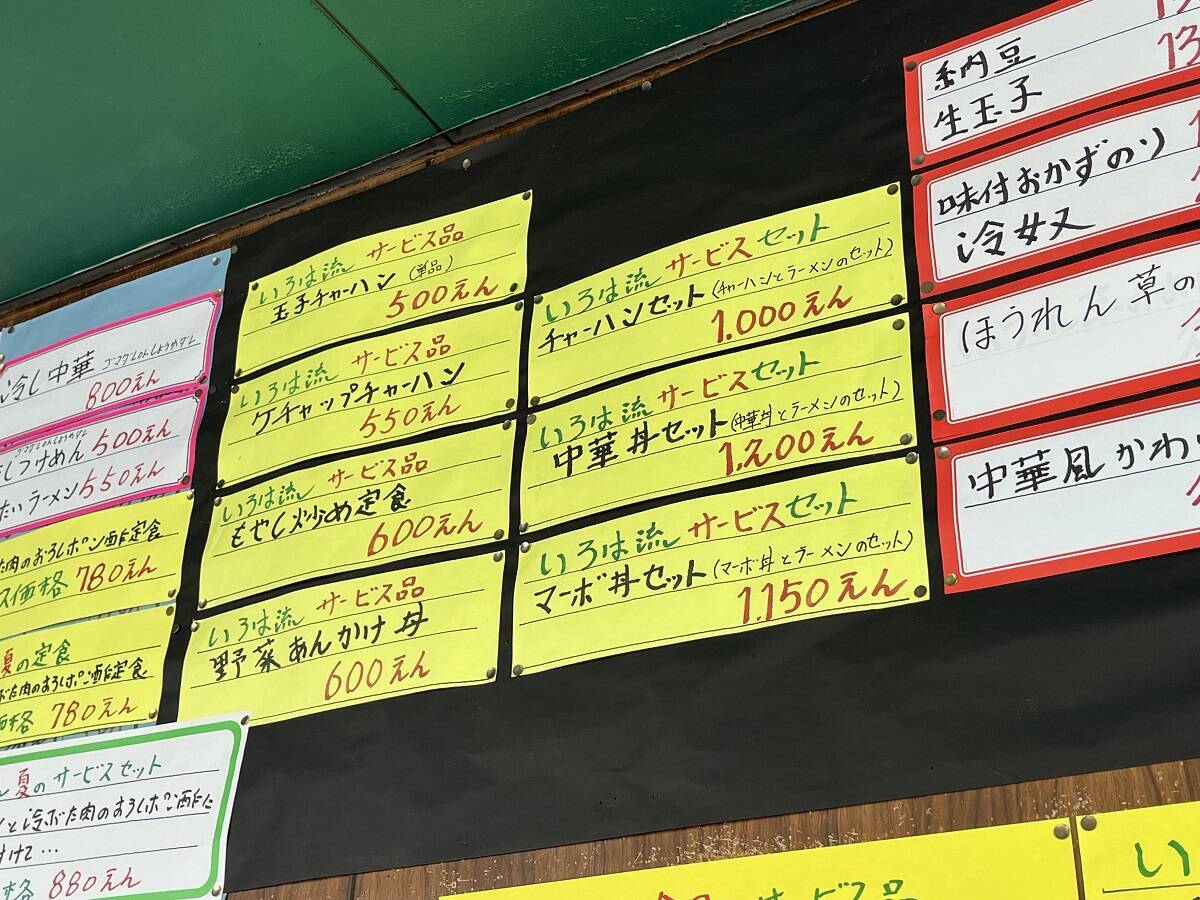 冷し中華
800えん
しつけめん 500えん
たいラーメン 550えん
た肉のおろしポン酢定食
ス価格 780えん
夏の定食
た肉のおろしポン酢定食
価格 780えん
夏のサービスセット
と冷ぶた肉のおろしポン酢に
つけて…
格 880えん
いろは流 サービス品
玉子チャーハン (単品)
500えん
いろは流 サービス品
ケチャップチャーハン
550えん
いろは流 サービス品
もやし炒め定食
600えん
いろは流 サービス品
野菜あんかけ丼
600えん
いろは流 サービスセット
チャーハンセット (チャーハンとラーメンのセット)
1,000えん
いろは流 サービスセット
中華丼セット (中華丼とラーメンのセット)
1,200えん
いろは流 サービスセット
マーボ丼セット (マーボ丼とラーメンのセット)
1,150えん
納豆
生玉子
味付おかずのり
冷奴
ほうれん草の
中華風かわ
サービス品
い